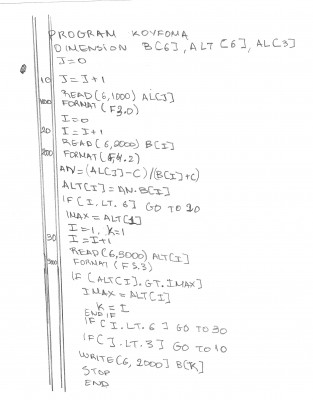 PROGRAM KOYFOMA
DIMENSION B[6], ALT[6], AL[3]
J=0
10 J=J+1
READ(6,1000) AL[J]
1000 FORMAT(F3.0)
I=0
20 I=I+1
READ(6,2000) B[I]
2000 FORMAT(F4.2)
AN=(AL[J]-C)/(B[I]+C)
ALT[I]=AN.B[I]
IF[I.LT.6] GO TO 20
IMAX=ALT[1]
I=1, K=1
30 I=I+1
READ(6,3000) ALT[I]
3000 FORMAT(F3.3)
IF[ALT[I].GT.IMAX]
IMAX=ALT[I]
K=I
END IF
IF[I.LT.6] GO TO 30
IF[J.LT.3] GO TO 10
WRITE(6,2000] B[K]
STOP
END